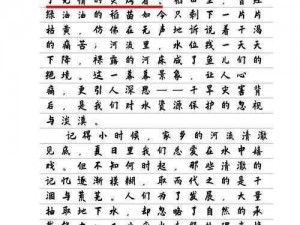 了无情的
绿油油的稻苗如今只剩下一片片
枯黄，仿佛在无声地诉说着干渴
的痛苦；河流里，水位线一天天
下降，裸露的河床成了鱼儿们的
绝境。这一幕幕景象，让人心
痛，更引人深思——干旱灾害背
后，是我们对水资源保护的忽视
与淡漠。
记得小时候，家乡的河流清澈
见底，夏日里我们总爱在水中嬉
戏。但不知何时起，那些清澈的
记忆逐渐模糊，取而代之的是干
涸与荒芜。人们为了发展，大量
抽取地下水，却忽略了自然的承